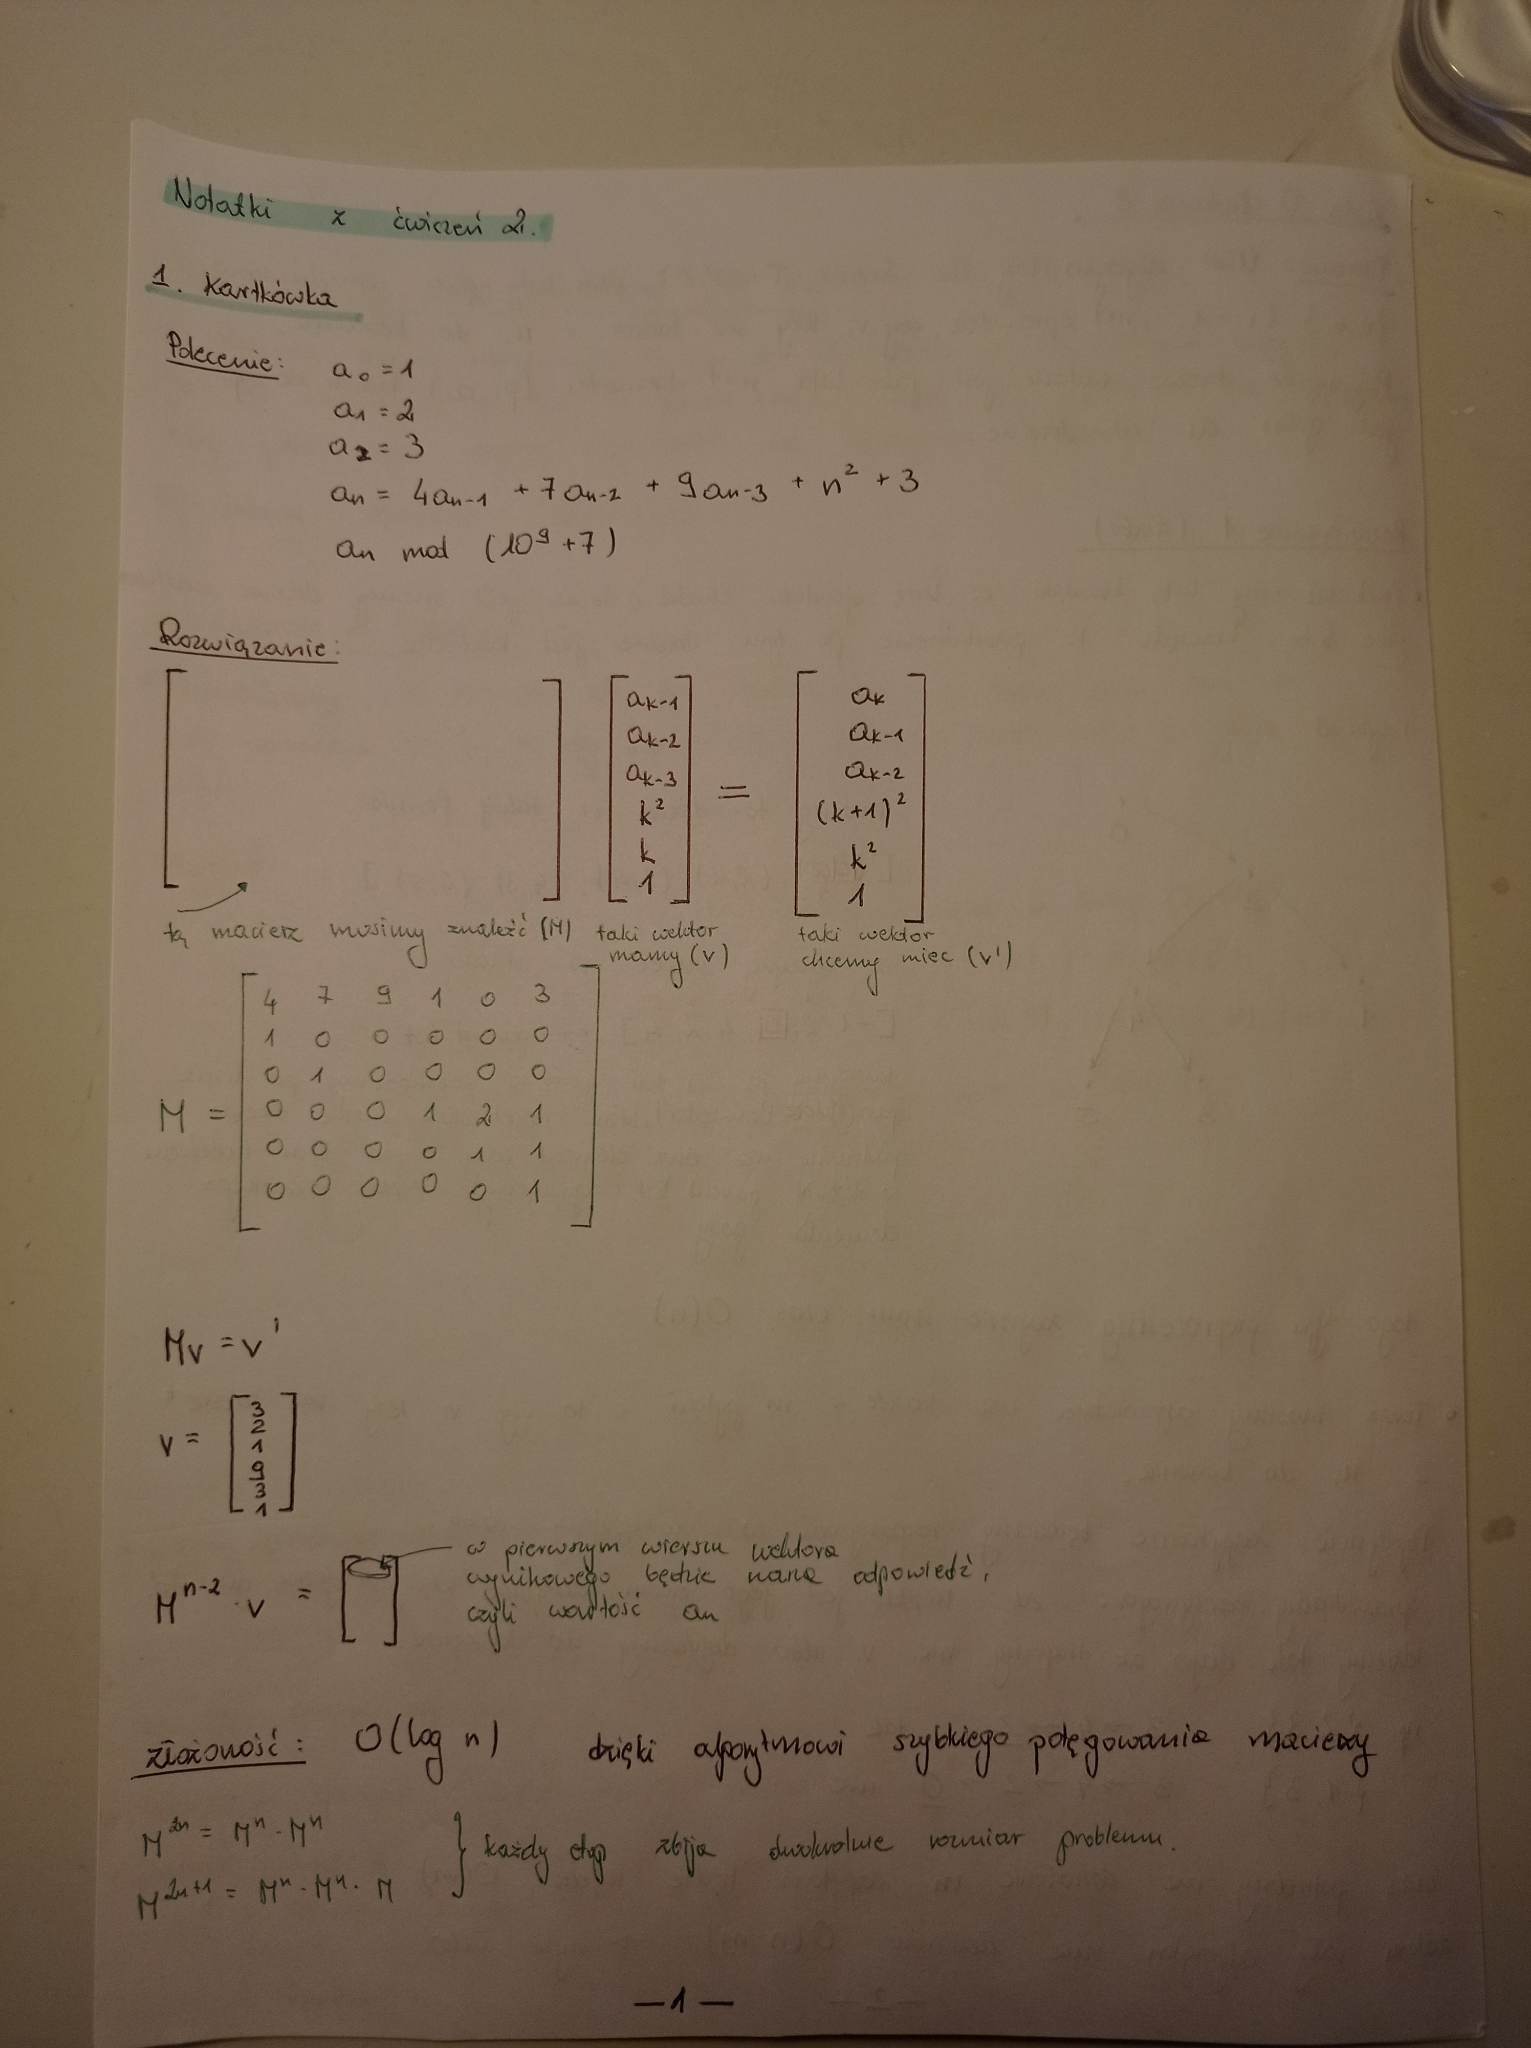 Notatki z ćwiczeń 2.
1. Kartkówka
Polecenie: a₀ = 1
a₁ = 2
a₂ = 3
aₙ = 4aₙ₋₁ + 7aₙ₋₂ + 9aₙ₋₃ + n² + 3
aₙ mod (10⁹ + 7)
Rozwiązanie:
[ ] [ aₖ₋₁ aₖ₋₂ aₖ₋₃ k² k 1 ] = [ aₖ aₖ₋₁ aₖ₋₂ (k+1)² k² 1 ]
tą macierz musimy znaleźć (M) taki wektor mamy (v) taki wektor chcemy miec (v')
4 7 9 1 0 3
1 0 0 0 0 0
0 1 0 0 0 0
M = 0 0 0 1 2 1
0 0 0 0 1 1
0 0 0 0 0 1
Mv = v'
v = [ 3 2 1 9 3 1 ]
Mⁿ⁻² · v = [ ]
w pierwszym wierszu wektora
wynikowego będzie nasza odpowiedź,
czyli wartość aₙ
złożoność: O(log n) dzięki algorytmowi szybkiego potęgowania macierzy
M²ⁿ = Mⁿ · Mⁿ
M²ⁿ⁺¹ = Mⁿ · Mⁿ · M } każdy etap zbija dwukrotnie rozmiar problemu.
— 1 —